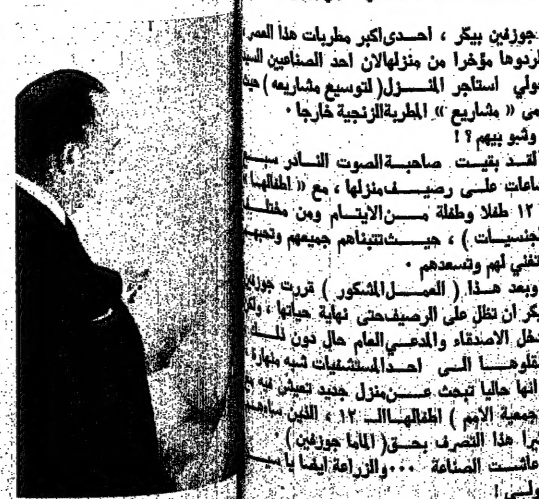 جوزفين بيكر ، احـدى اكبر مطربات هذا العصر
طردوها مؤخرا من منزلها لان احد الصناعيين
استاجر المنـــزل ( لتوسيع مشاريعه )
« مشاريع » المطربة الزنجية خارجا ٠
وشبو بيهم ؟ !
لقـد بقيـت صاحبـة الصوت النـادر سبـع
ساعات علـى رصيـف منزلها ، مع « اطفالها »
١٢ طفلا وطفلة مـــن الايتـام ومن مختلف
جنسيــات ) ، حيــث تتبناهم جميعهم وتحبهم
تغني لهم وتسعدهم ٠
وبعد هـذا ( العمـــل المشكور ) قررت جوزفين
بيكر ان تظل على الرصيف حتى نهاية حياتها ، ولكن
تدخل الاصدقاء والمدعـي العام حال دون ذلـك
نقلوهــا الـى احـد المستشفيات شبه منهارة
انها حاليا تبحث عـــن منزل جديد تعيش فيه مع
( جمعية الامم ) اطفالهـا الـ ١٢ ، الذين
هذا التصرف بحـق ( الماما جوزفين ) ٠
عاشـت الصناعة ٠٠٠ والزراعة ايضا يا